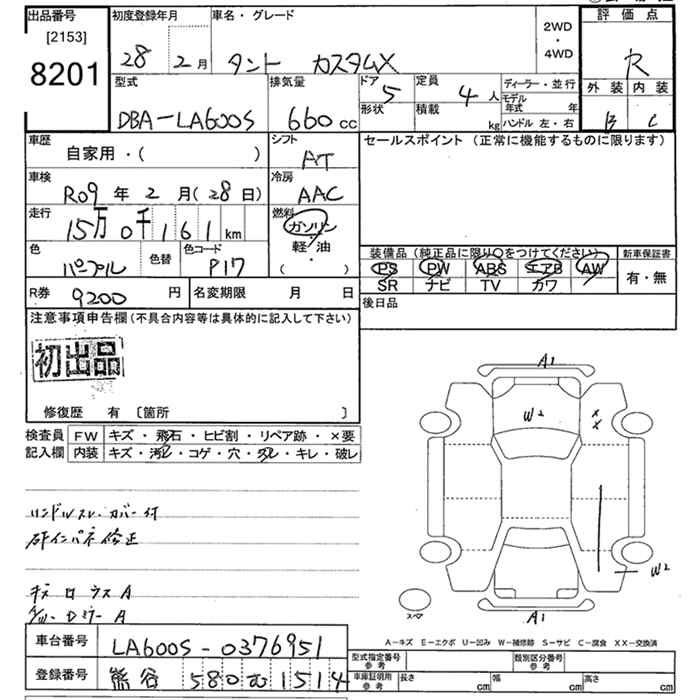 出品番号
[2153]
8201
初度登録年月
28 2月
車名・グレード
タント カスタムX
2WD
・
4WD
評価点
R
外装 内装
B C
型式
DBA-LA600S
排気量
660 cc
ドア 5
形状
定員 4 人
積載 kg
ディーラー・並行
モデル年式 年
ハンドル 左・右
車歴
自家用・( )
シフト
AT
セールスポイント (正常に機能するものに限ります)
車検
R09 年 2 月(28 日)
冷房
AAC
走行
15万 0千 161 km
燃料
ガソリン
軽・油
・
( )
色
パープル
色替
色コード
P17
装備品(純正品に限り○をつけてください)
PS PW ABS エアB AW
SR ナビ TV カワ
新車保証書
有・無
R券 9200 円
名変期限 月 日
後日品
注意事項申告欄(不具合内容等は具体的に記入して下さい)
初出品
修復歴 有 〔箇所 〕
検査員
記入欄
FW キズ・飛石・ヒビ割・リペア跡・×要
内装 キズ・汚レ・コゲ・穴・スレ・キレ・破レ
ハンドルスレ・カバー付
キズ
A
A
A1
W2
X
X
W2
A1
スペア
A-キズ E-エクボ U-凹み W-補修跡 S-サビ C-腐食 XX-交換済
車台番号 LA600S-0376951
登録番号 熊谷 580 む 1514
型式指定番号
参考
類別区分番号
参考
車庫証明用
参考
長さ cm
幅 cm
高さ cm